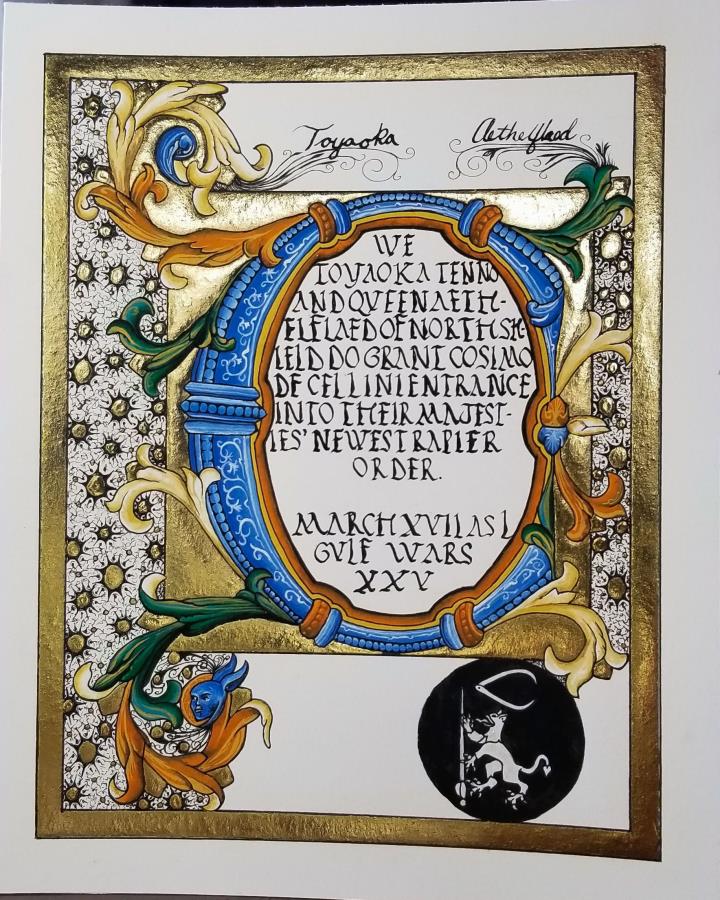 Toyaoka Aethelflaed
WE
TOYAOKA TENNO
AND QVEEN AETH-
ELFLAED OF NORTHSH-
IELD DO GRANT COSIMO
DE CELLINI ENTRANCE
INTO THEIR MAJEST-
IES' NEWEST RAPIER
ORDER.
MARCH XVII AS L
GVLF WARS
XXV